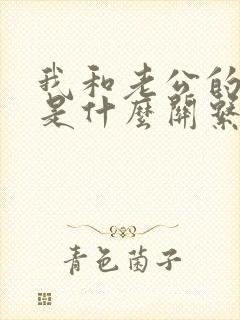 我和老公的
是什麼關繫
青色菌子